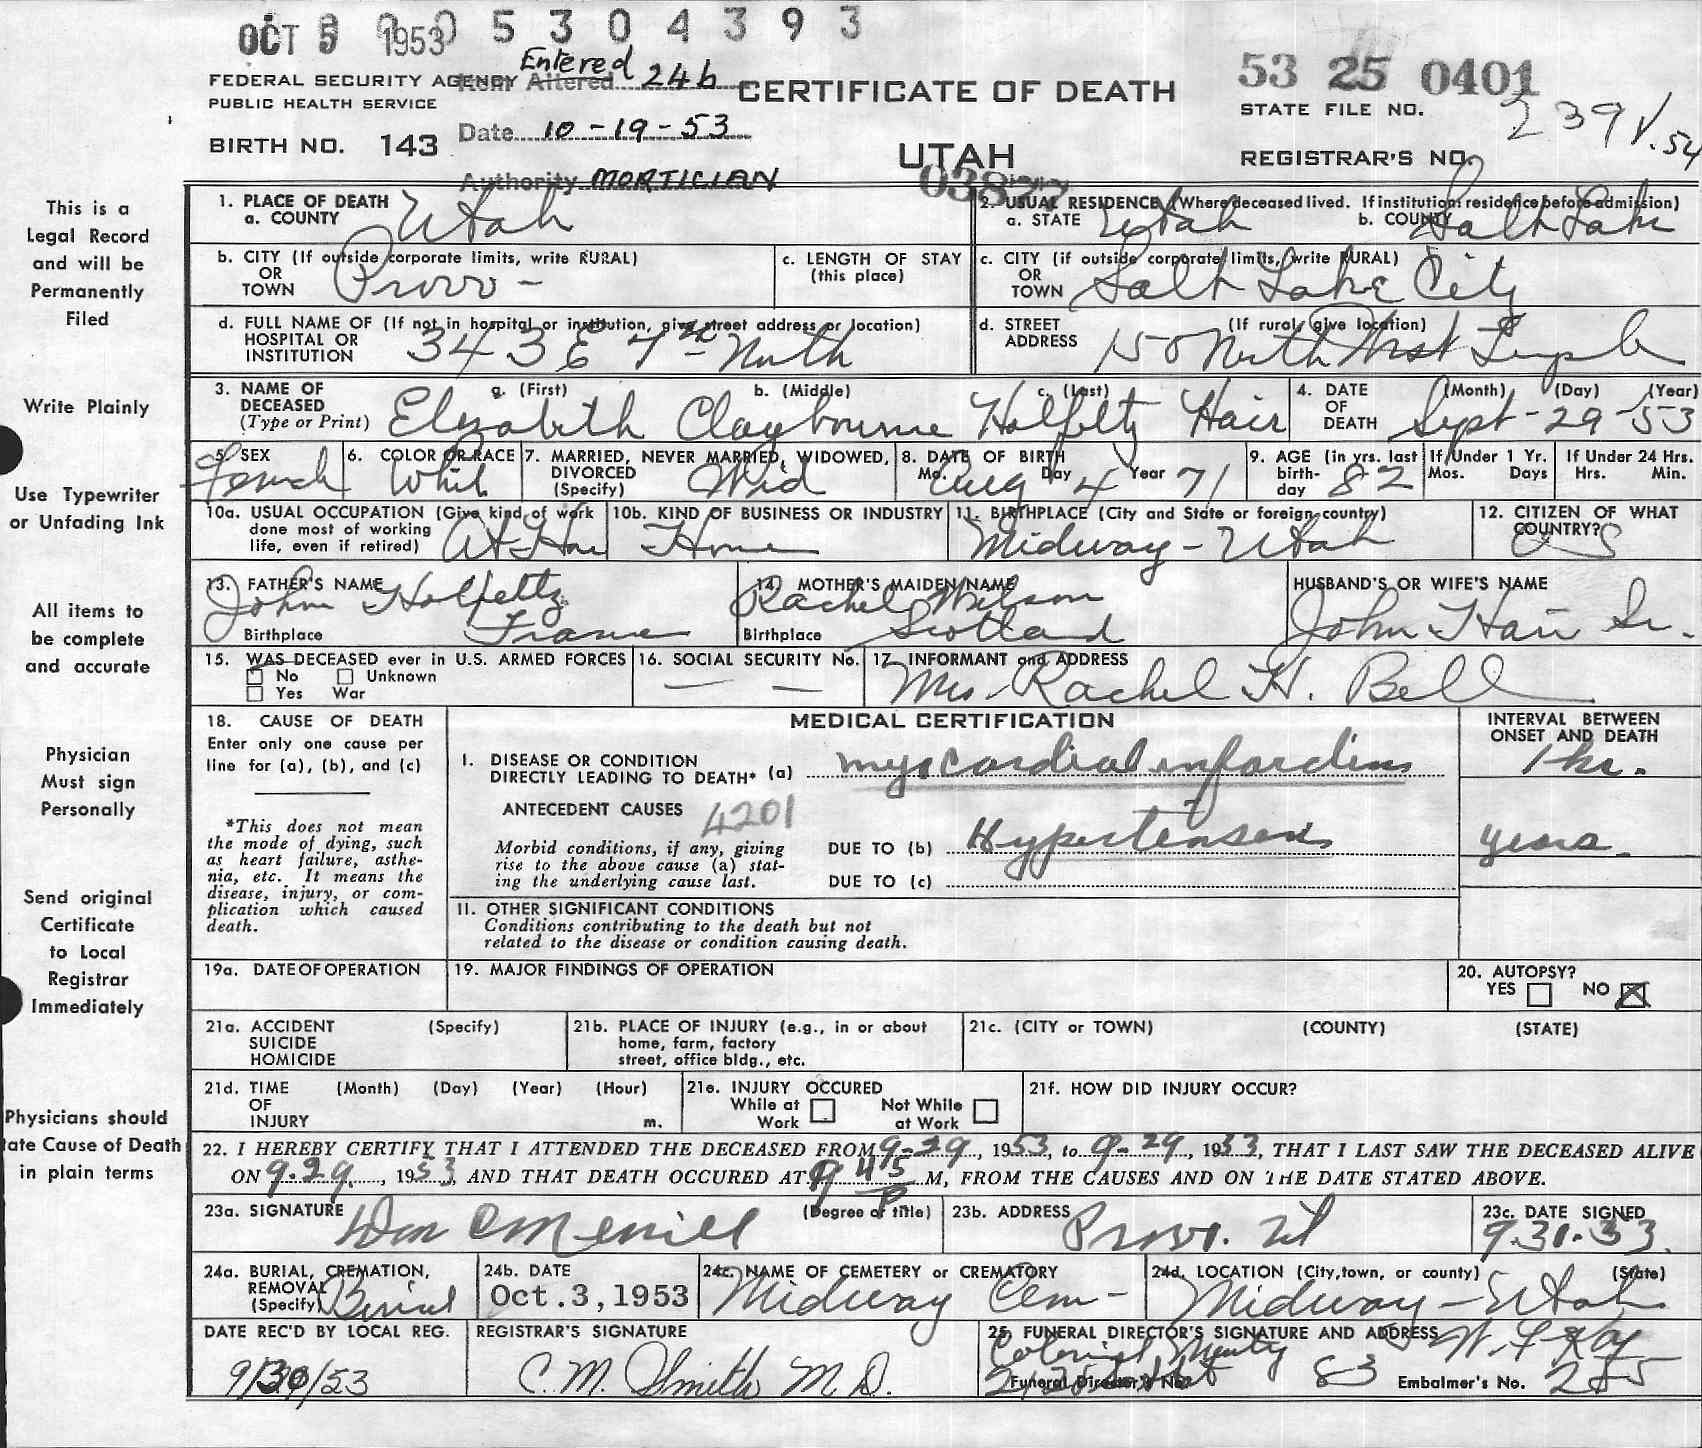 OCT 5 1953 0 5 3 0 4 3 9 3
FEDERAL SECURITY AGENCY
PUBLIC HEALTH SERVICE
Entered
Item Altered 24b
CERTIFICATE OF DEATH
53 25 0401
STATE FILE NO.
239
BIRTH NO. 143
Date 10-19-53
UTAH
REGISTRAR'S NO.
Authority MORTICIAN
This is a
Legal Record
and will be
Permanently
Filed
1. PLACE OF DEATH
a. COUNTY Utah
2. USUAL RESIDENCE (Where deceased lived. If institution: residence before admission)
a. STATE Utah b. COUNTY Salt Lake
b. CITY (If outside corporate limits, write RURAL)
OR
TOWN Provo -
c. LENGTH OF STAY
(this place)
c. CITY (if outside corporate limits, write RURAL)
OR
TOWN Salt Lake City
d. FULL NAME OF (If not in hospital or institution, give street address or location)
HOSPITAL OR
INSTITUTION 343 E 7th North
d. STREET (If rural, give location)
ADDRESS 150 North West Temple
Write Plainly
3. NAME OF DECEASED
(Type or Print)
a. (First) b. (Middle) c. (Last)
Elizabeth Claybourne Holfeltz Hair
4. DATE OF DEATH (Month) (Day) (Year)
Sept-29-53
Use Typewriter
or Unfading Ink
5. SEX
Female
6. COLOR OR RACE
White
7. MARRIED, NEVER MARRIED, WIDOWED,
DIVORCED
(Specify) Wid
8. DATE OF BIRTH
Mo. Aug Day 4 Year 71
9. AGE (in yrs. last
birth-
day 82
If Under 1 Yr.
Mos. Days
If Under 24 Hrs.
Hrs. Min.
10a. USUAL OCCUPATION (Give kind of work
done most of working
life, even if retired) At Home
10b. KIND OF BUSINESS OR INDUSTRY
Home
11. BIRTHPLACE (City and State or foreign country)
Midway - Utah
12. CITIZEN OF WHAT
COUNTRY?
US
All items to
be complete
and accurate
13. FATHER'S NAME
John Holfeltz
Birthplace France
14. MOTHER'S MAIDEN NAME
Rachel Wilson
Birthplace Scotland
HUSBAND'S OR WIFE'S NAME
John Hair Sr.
15. WAS DECEASED ever in U.S. ARMED FORCES
No Unknown
Yes War
16. SOCIAL SECURITY No.
— —
17. INFORMANT and ADDRESS
Mrs. Rachel H. Bell
Physician
Must sign
Personally
18. CAUSE OF DEATH
Enter only one cause per
line for (a), (b), and (c)
*This does not mean
the mode of dying, such
as heart failure, asthe-
nia, etc. It means the
disease, injury, or com-
plication which caused
death.
MEDICAL CERTIFICATION
INTERVAL BETWEEN
ONSET AND DEATH
I. DISEASE OR CONDITION
DIRECTLY LEADING TO DEATH* (a) myocardial infarction 1 hr.
ANTECEDENT CAUSES 4201
Morbid conditions, if any, giving
rise to the above cause (a) stat-
ing the underlying cause last.
DUE TO (b) Hypertension years.
DUE TO (c)
II. OTHER SIGNIFICANT CONDITIONS
Conditions contributing to the death but not
related to the disease or condition causing death.
Send original
Certificate
to Local
Registrar
Immediately
19a. DATE OF OPERATION
19. MAJOR FINDINGS OF OPERATION
20. AUTOPSY?
YES NO X
21a. ACCIDENT (Specify)
SUICIDE
HOMICIDE
21b. PLACE OF INJURY (e.g., in or about
home, farm, factory
street, office bldg., etc.
21c. (CITY or TOWN) (COUNTY) (STATE)
21d. TIME (Month) (Day) (Year) (Hour)
OF
INJURY m.
21e. INJURY OCCURED
While at Work
Not While at Work
21f. HOW DID INJURY OCCUR?
Physicians should
ate Cause of Death
in plain terms
22. I HEREBY CERTIFY THAT I ATTENDED THE DECEASED FROM 9-29, 1953, to 9-29, 1953, THAT I LAST SAW THE DECEASED ALIVE
ON 9.29, 1953, AND THAT DEATH OCCURED AT 9 45 P M, FROM THE CAUSES AND ON THE DATE STATED ABOVE.
23a. SIGNATURE (Degree or title)
Don C Merrill
23b. ADDRESS
Provo. Ut
23c. DATE SIGNED
9.30.53.
24a. BURIAL, CREMATION,
REMOVAL
(Specify) Burial
24b. DATE
Oct. 3, 1953
24c. NAME OF CEMETERY or CREMATORY
Midway Cem -
24d. LOCATION (City, town, or county) (State)
Midway - Utah
DATE REC'D BY LOCAL REG.
9/30/53
REGISTRAR'S SIGNATURE
C. M. Smith M. D.
25. FUNERAL DIRECTOR'S SIGNATURE AND ADDRESS
Colonial
Funeral Director's No. 83 Embalmer's No. 285